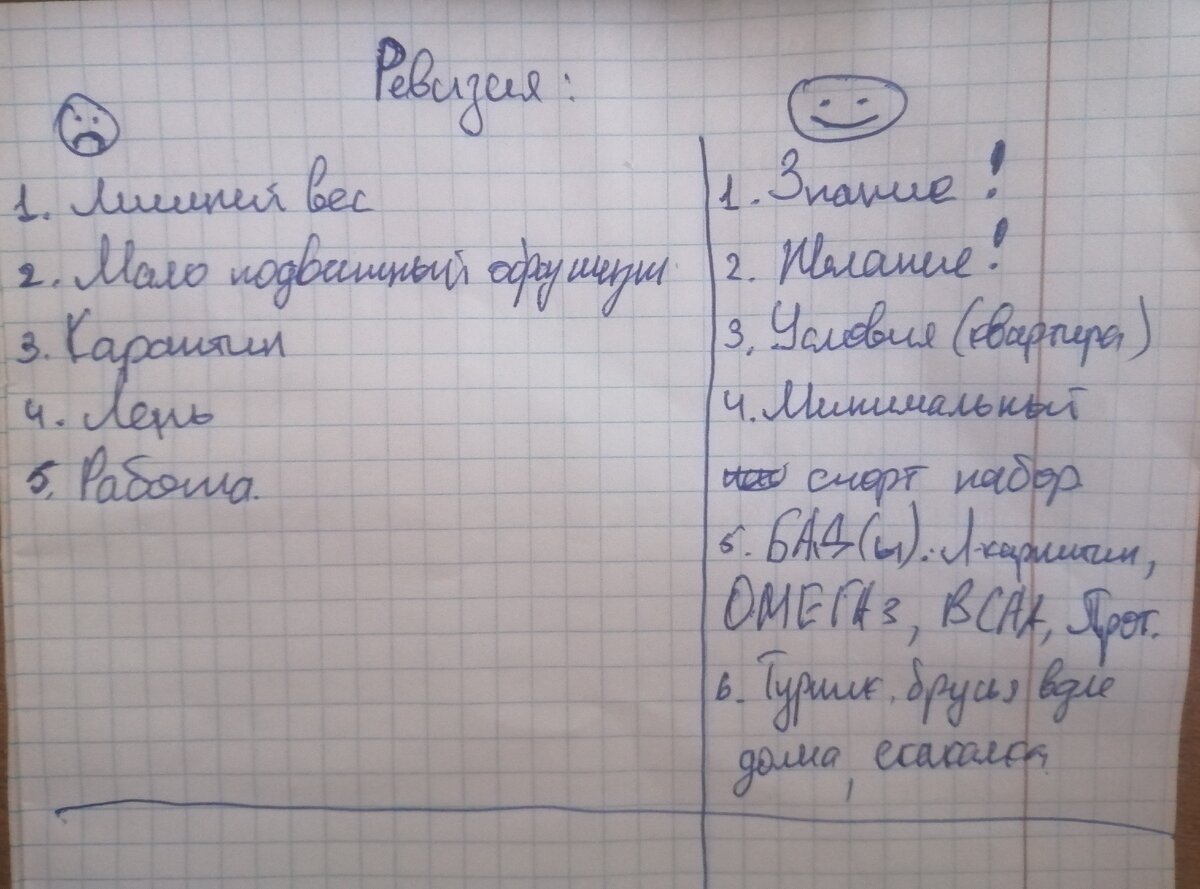 Ревизия:
1. Лишний вес
2. Мало подвижный образ жизни
3. Карантин
4. Лень
5. Работа.
1. Знание!
2. Желание!
3. Условия (квартира)
4. Минимальный
спорт набор
5. БАД(ы): Л-карнитин,
ОМЕГА3, BCAA, Прот.
6. Турник, брусья возле
дома, скакалка